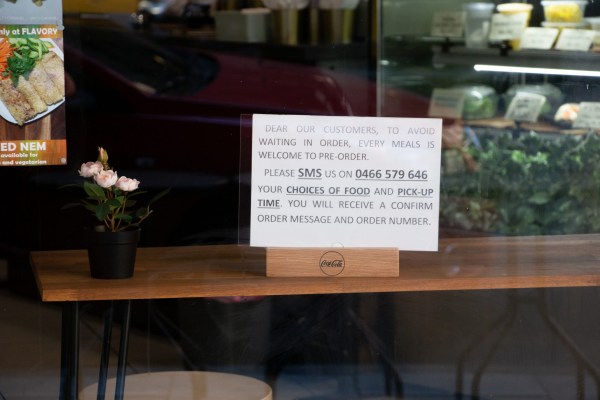 nly at FLAVORY
ED NEM
available for
and vegetarian
DEAR OUR CUSTOMERS, TO AVOID
WAITING IN ORDER, EVERY MEALS IS
WELCOME TO PRE-ORDER.
PLEASE SMS US ON 0466 579 646
YOUR CHOICES OF FOOD AND PICK-UP
TIME. YOU WILL RECEIVE A CONFIRM
ORDER MESSAGE AND ORDER NUMBER.
Coca-Cola